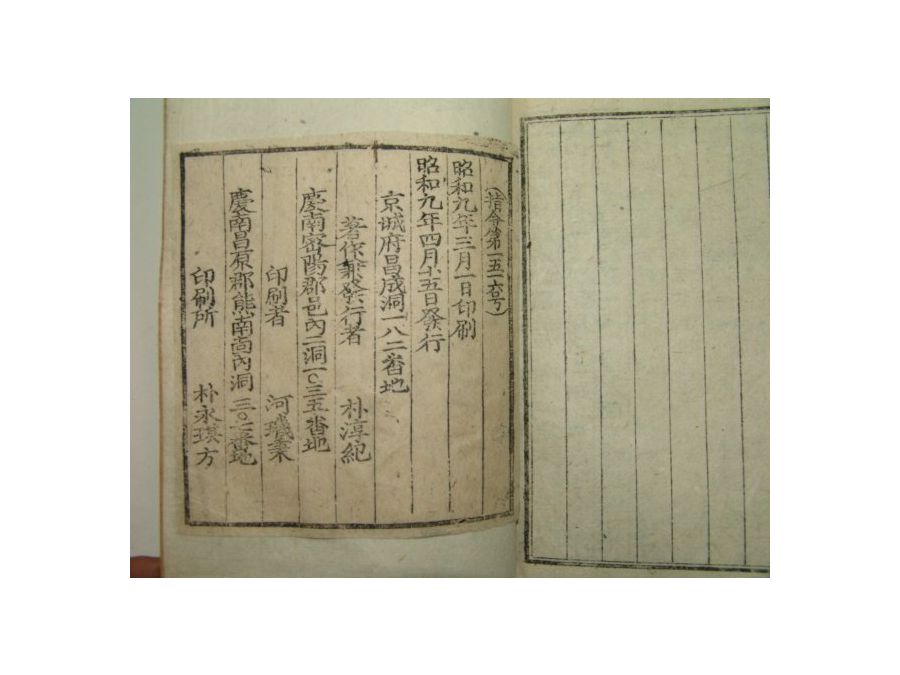 (指令第一五一六号)
昭和九年三月一日印刷
昭和九年四月十五日發行
京城府昌成洞一八二番地
著作兼發行者 朴淳紀
慶南密陽郡邑內二洞一〇三五番地
印刷者 河璣業
慶南昌原郡熊南面內洞三〇二番地
印刷所 朴永琪方